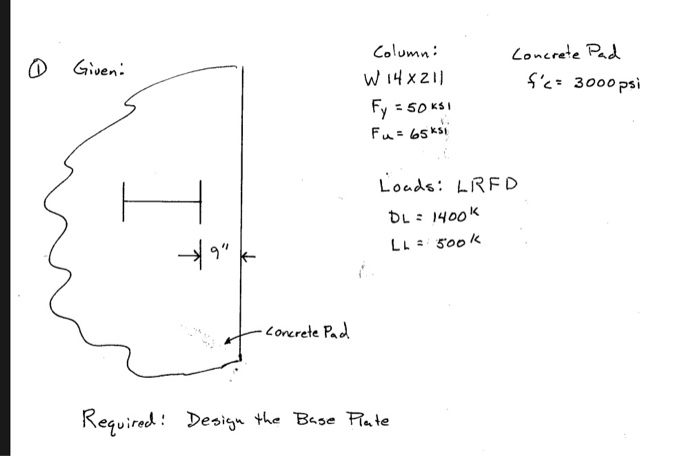 ① Given:
Column:
W14X211
Fy = 50 ksi
Fu = 65 ksi
Concrete Pad
f'c = 3000 psi
Loads: LRFD
DL = 1400 k
LL = 500 k
9"
Concrete Pad
Required: Design the Base Plate